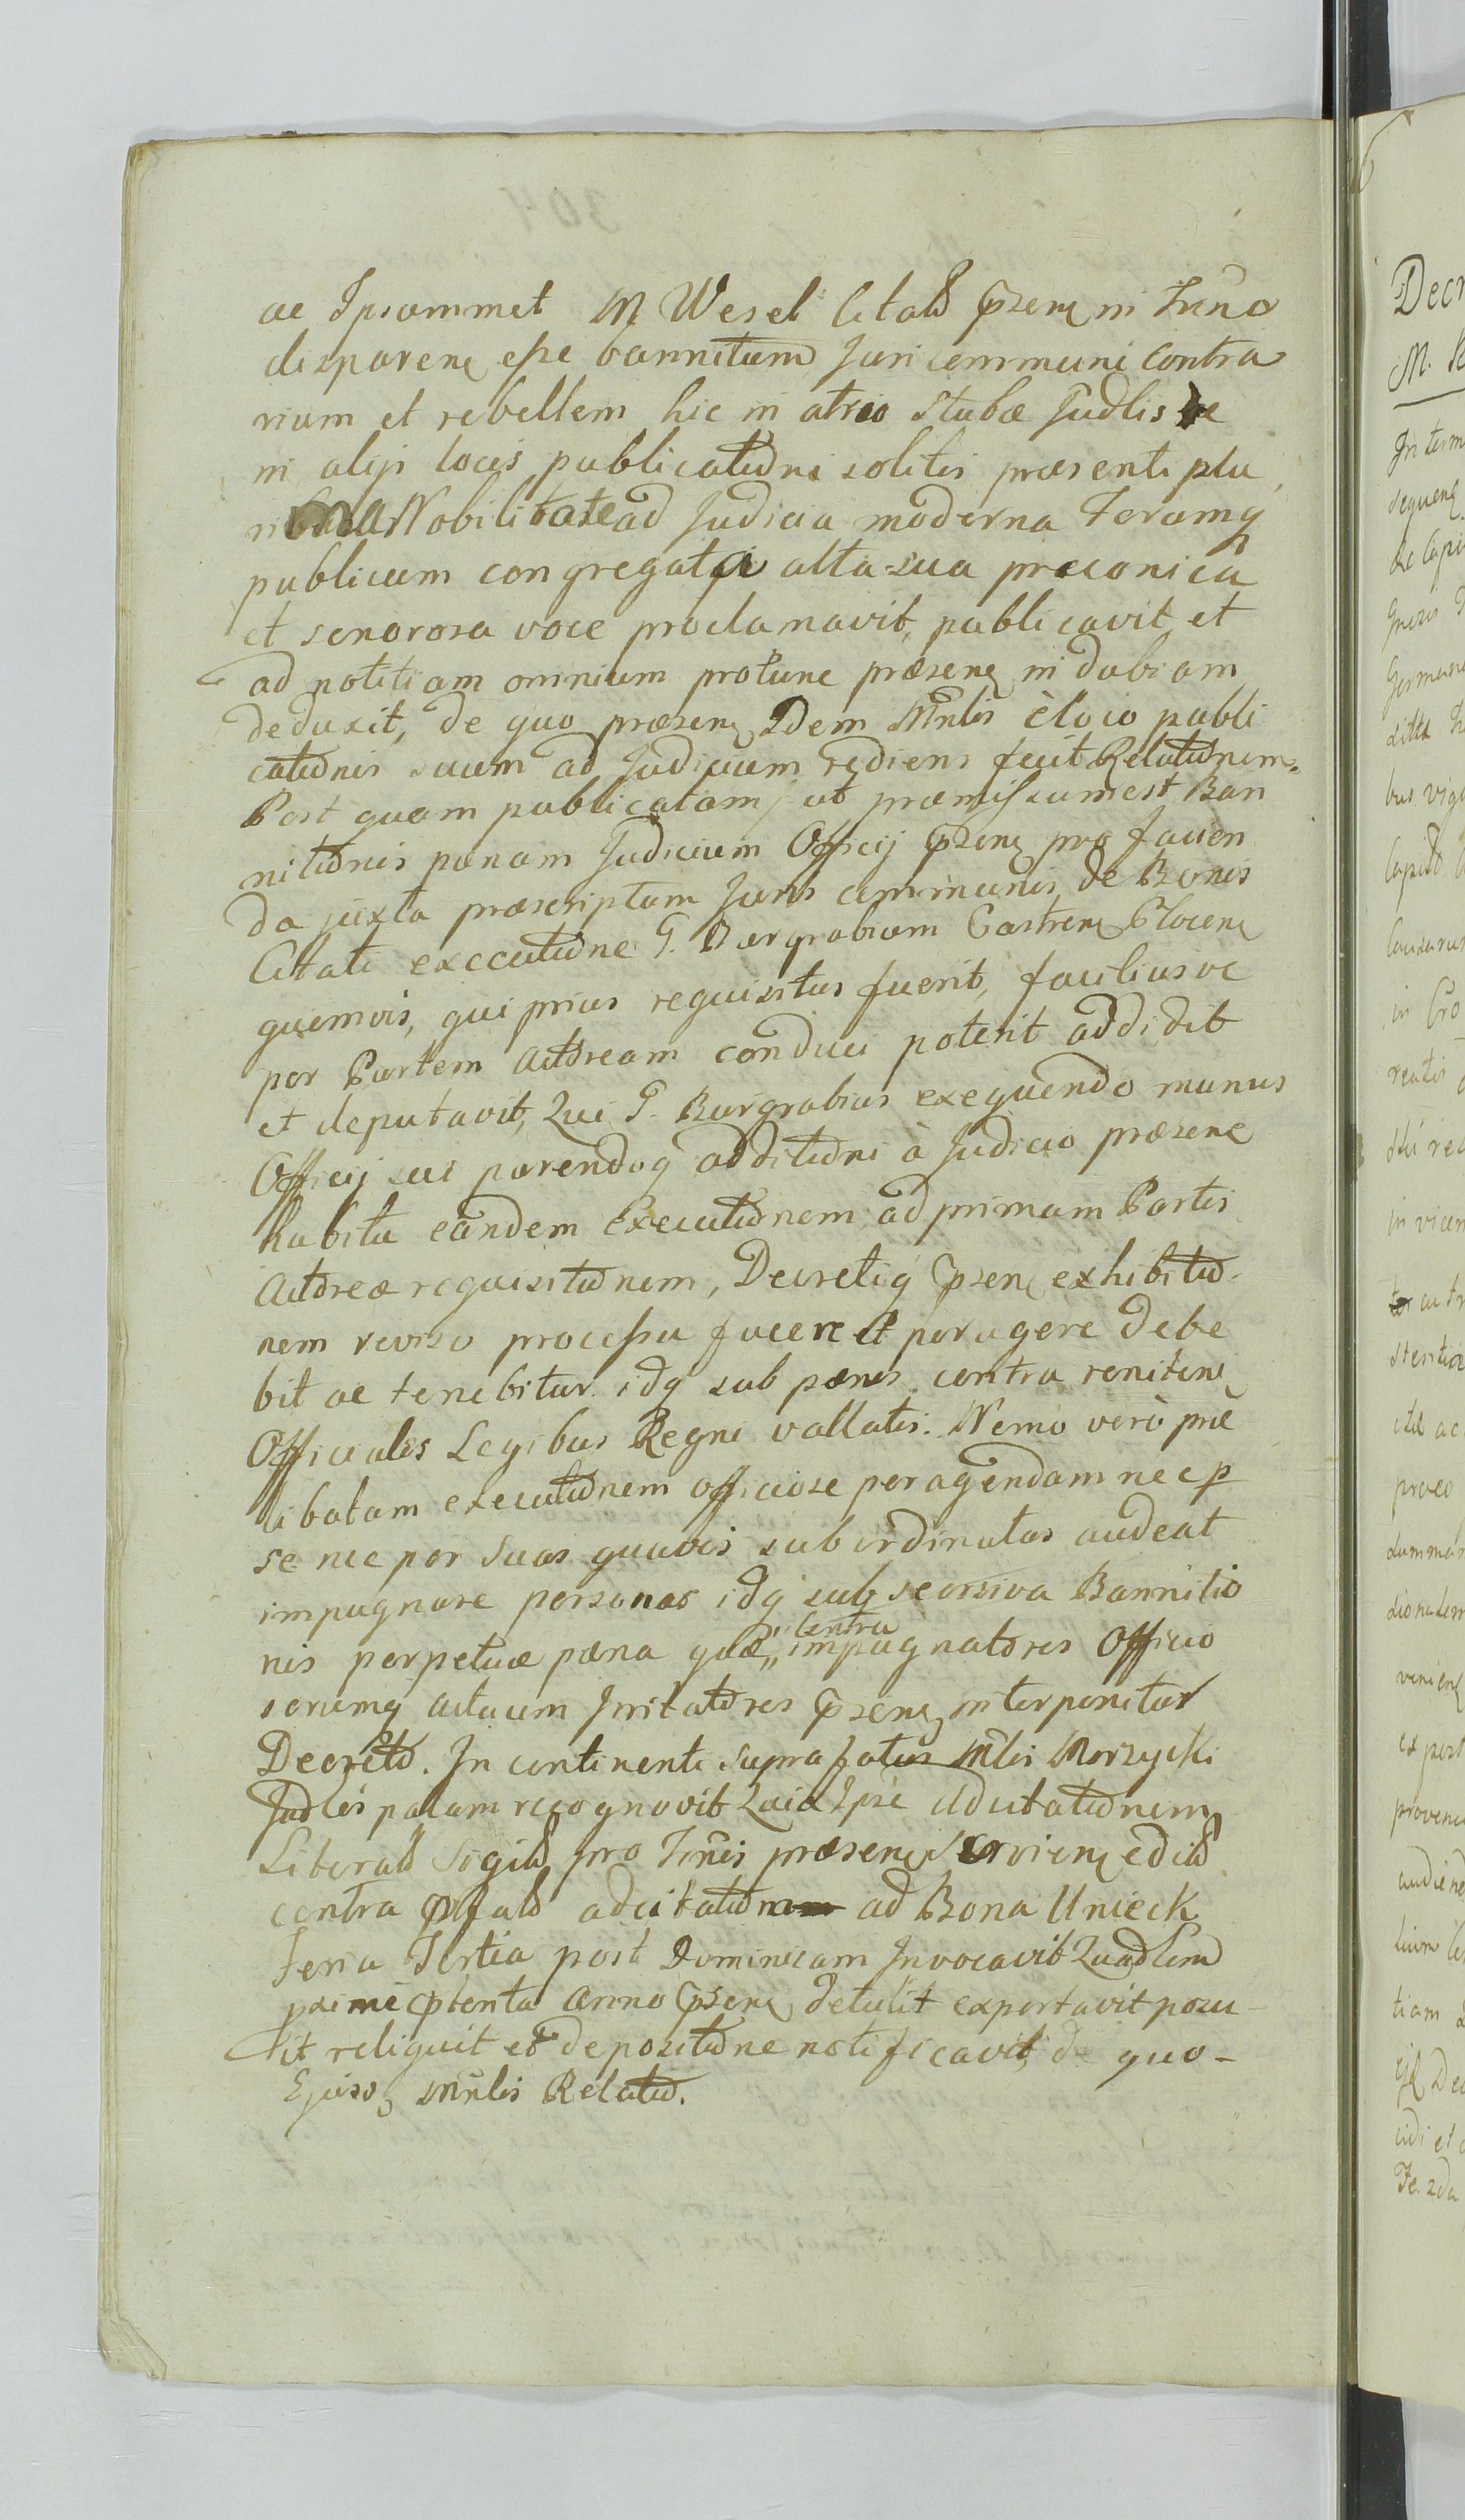 ac Ipsummet M Wesel Citatũ p̃senȩ in Trno
disparenȩ eſse bannitum Juri communi contra
rium et rebellem hic in atrio Stubæ Judlis ac
in alijs locis publicationi solitis præsenti plu
Nobilitate ad Judicia moderna Forumq̃
publicum congregata alta sua præconica
et sonorosa voce proclamavit, publicavit et
ad notitiam omnium protunc præsenȩ indubiam
deduxit, de quo præsenȩ Idem Mnlis è loco publi
cationis suum ad Judicium rediens fecit Relationem.
Post quam publicatam ut præmiſsum est Ban
nitionis pænam Judicium Officij p̃senȩ pro facien
da juxta præscriptum Juris communis de Bonis
Citati executione G. Burgrabium Castrenȩ Plocenȩ
quemvis, qui prius requisitus fuerit, faciliusve
per Partem Actoream conduci poterit addidit
et deputavit, Qui G. Burgrabius exequendo munus
Officij sui parendoq̃ additioni à Judicio præsenȩ
habita eandem Executionem ad primam Partis
Actoreæ requisitionem, Decretiq̃ p̃senȩ exhibitio-
nem reviso proceſsu facere et peragere debe
bit ac tenebitur idq̃ sub pænis contra renitenȩ
Officiales Legibus Regni vallatis. Nemo verò præ
libatam executionem officiose peragendam nec p
se nec per Suas quavis subordinatas audeat
impugnare personas idq̃ sub seorsiva Bannitio
nis perpetuæ pæna quæ „ contra impugnatores Officio
sorumq̃ actuum Irritatores p̃senȩ interponitur
Decreto. In continenti Suprafatus Mlis Morzycki
Judlis palam recognovit Quia Ipse Adcitationem
Literalẽ Sigilẽ pro Trnis præsenȩ Servienȩ editã
contra p̃fatũ adcitation ad Bona Unieck
Feria Tertia post Dominicam Invocavit Quadlem
p̃tenta Anno p̃senȩ detulit exportavit posu-
it reliquit et de positione notificavit, de quo-
Ejusdȩ Mnlis Relatio.